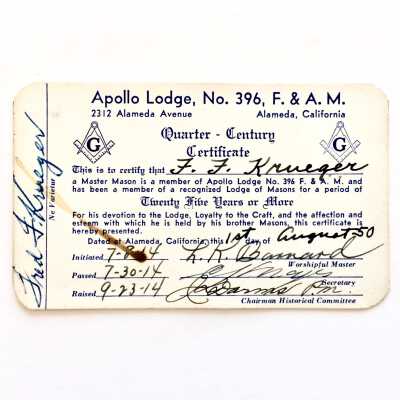 Apollo Lodge, No. 396, F. & A. M.
2312 Alameda Avenue Alameda, California
Quarter - Century
Certificate
G G
This is to certify that F. F. Krueger
a Master Mason is a member of Apollo Lodge No. 396 F. & A. M. and
has been a member of a recognized Lodge of Masons for a period of
Twenty Five Years or More
For his devotion to the Lodge, Loyalty to the Craft, and the affection and
esteem with which he is held by his brother Masons, this certificate is
hereby presented.
Dated at Alameda, California, this 1st day of August-50
Initiated 7-8-14 L. R. Barnard
Worshipful Master
Passed 7-30-14
Secretary
Raised 9-23-14 P.M.
Chairman Historical Committee
Fred F Krueger
Ne Varietur